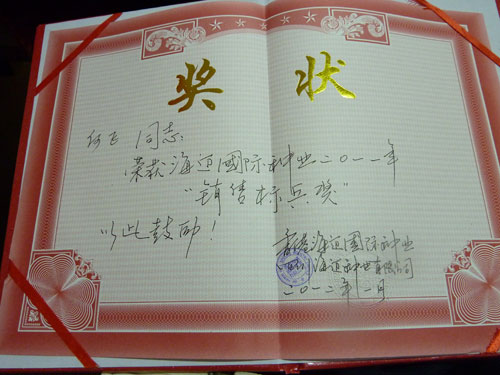 奖 状
何飞 同志:
荣获海迈国际种业二〇一一年
"销售标兵奖"
以此鼓励!
香港海迈国际种业
四川海迈种业有限公司
二〇一二年一月